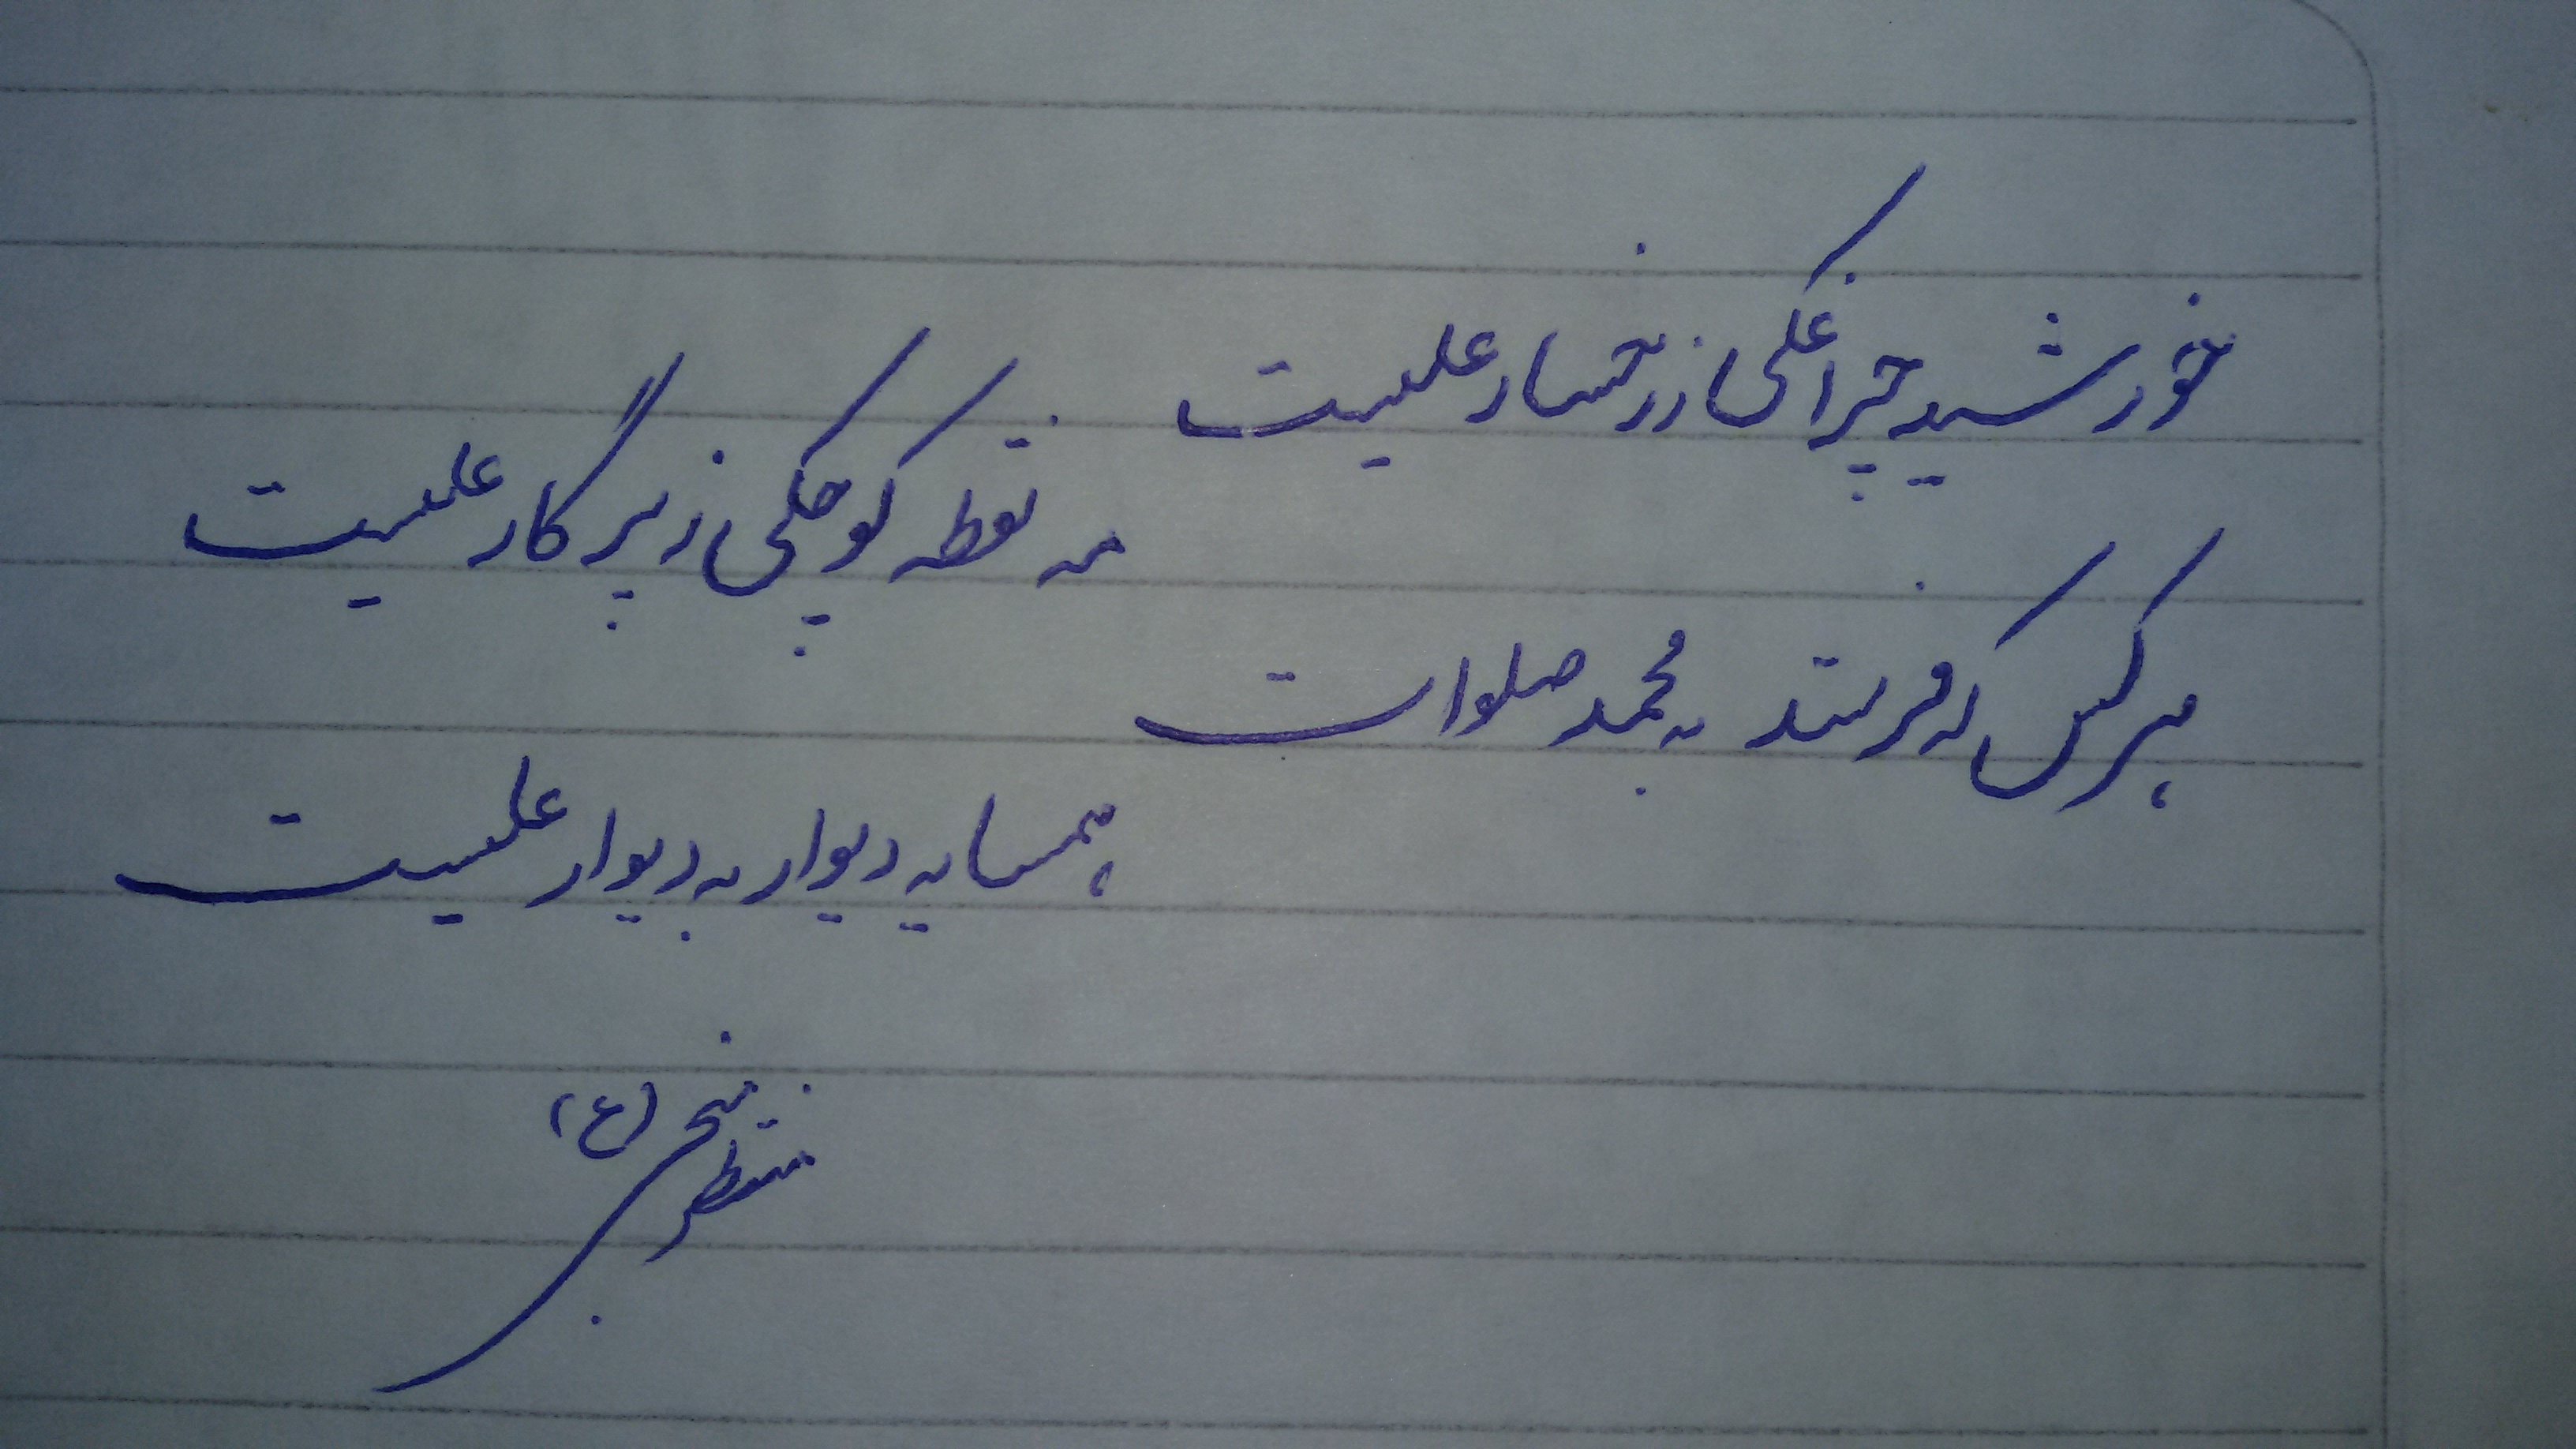 خورشید چراغکی ز رخسار علیست
مه نقطه کوچکی ز پرگار علیست
هر کس که فرستد به محمد صلوات
همسایه دیوار به دیوار علیست
منتظر منجی (عج)